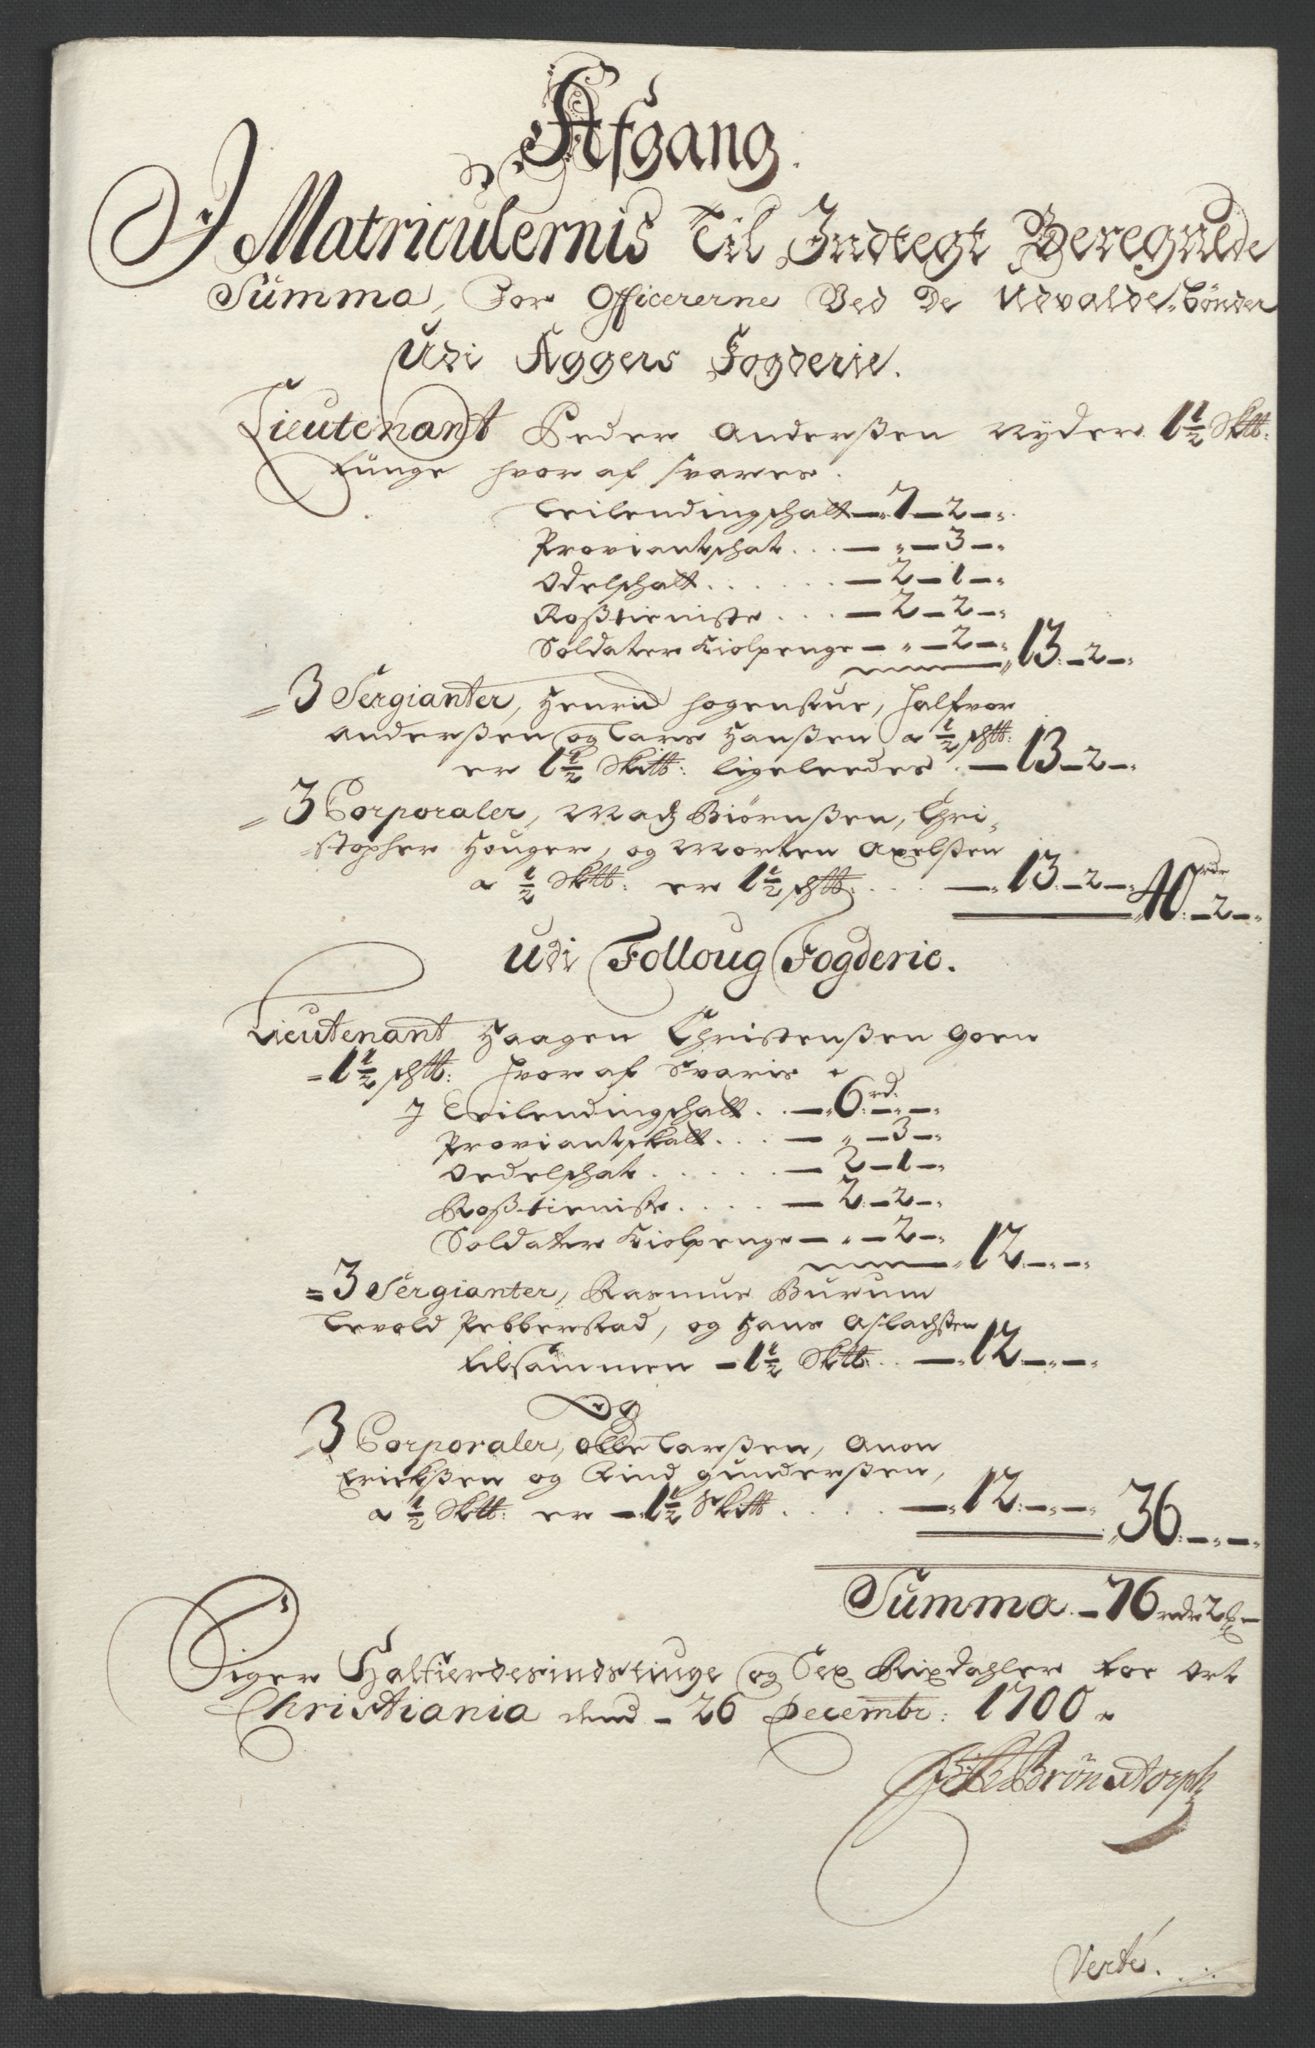 Afgang.
I Matriculernis Til Indtegt Beregnede
Summa, For Officererne Ved De Udvalde bönder
Udi Aggers Fogderie.
Lieutenant Peder Anderßen Nyder 1 1/2 Sktt:
tunge hvor af svares.
Leilendingschatt — 7 — 2 —
Proviantschat . . . — " — 3 —
Odelschatt . . . . . — 2 — 1 —
Roßtieniste . . . — 2 — 2 —
Soldater Kiolpenge — " — 2 — 13 — 2 —
3 Sergianter, Henrid hogenstue, halfvor
Anderßen og Lars Hanßen a 1/2 schtt:
er 1 1/2 Sktt: ligeleedes — 13 — 2 —
3 Corporaler, Madz Biörnßen, Chri-
stopher Houger, og Morten Axelsten
a 1/2 Sktt: er 1 1/2 schtt: . . . — 13 — 2 — 40 rdr — 2 —
Udi Folloug Fogderie.
Lieutenant Haagen Christenßen Goen
1 1/2 schtt: hvor af Svaris
I Leilendingschatt . . — 6 rd: — —
Proviantskatt . . . — " — 3 —
Oedelschat . . . . . — 2 — 1 —
Roßtieniste . . . . — 2 — 2 —
Soldater Kiolpenge — " — 2 — 12 — —
3 Sergianter, Rasmus Burum
Levold Pebberstad, og Hans Aslachsten
tilsammen 1 1/2 Sktt: . . — 12 — —
Og
3 Corporaler, Olle Larßen, Anon
Erichßen og Lind gunderßen,
a 1/2 Sktt: er 1 1/2 Sktt . . . . — 12 — — 36 — —
Summa — 76 rdr 2
Siger Halfierdesindstiuge og Sex Rixdahler toe Ort
Christiania dend 26 Decembr: 1700
Brönstorph
Verte.